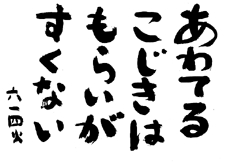 あわてる
こじきは
もらいが
すくない
六一四火